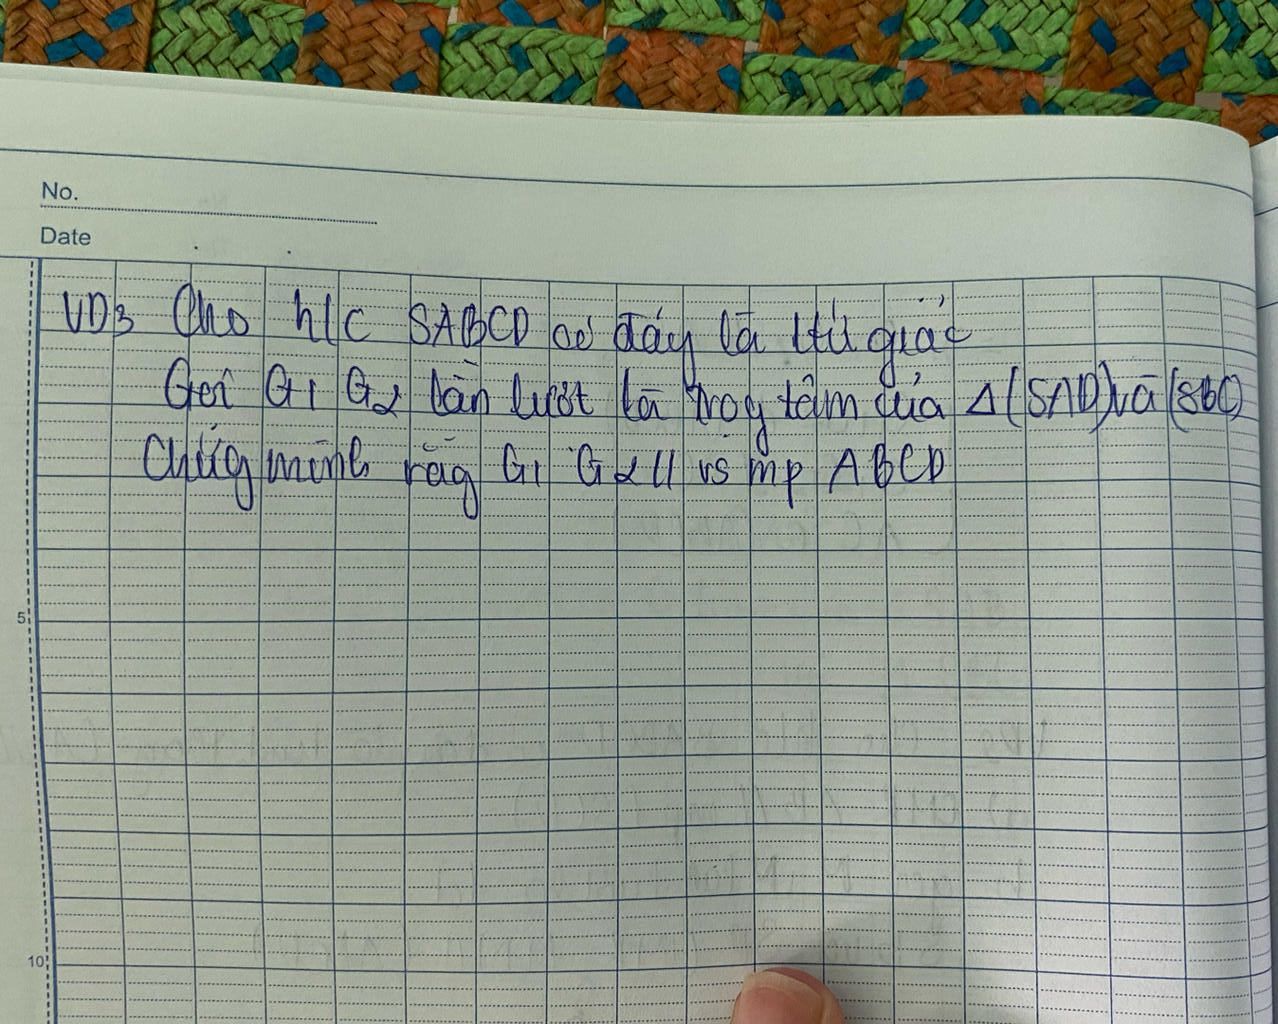 No.
Date
VD3 Cho h/c SABCD có đáy là tứ giác
Gọi G1 G2 lần lượt là trog tâm của Δ(SAD) và (SBC)
Chứg minh rằg G1 G2 // vs mp ABCD
5
10